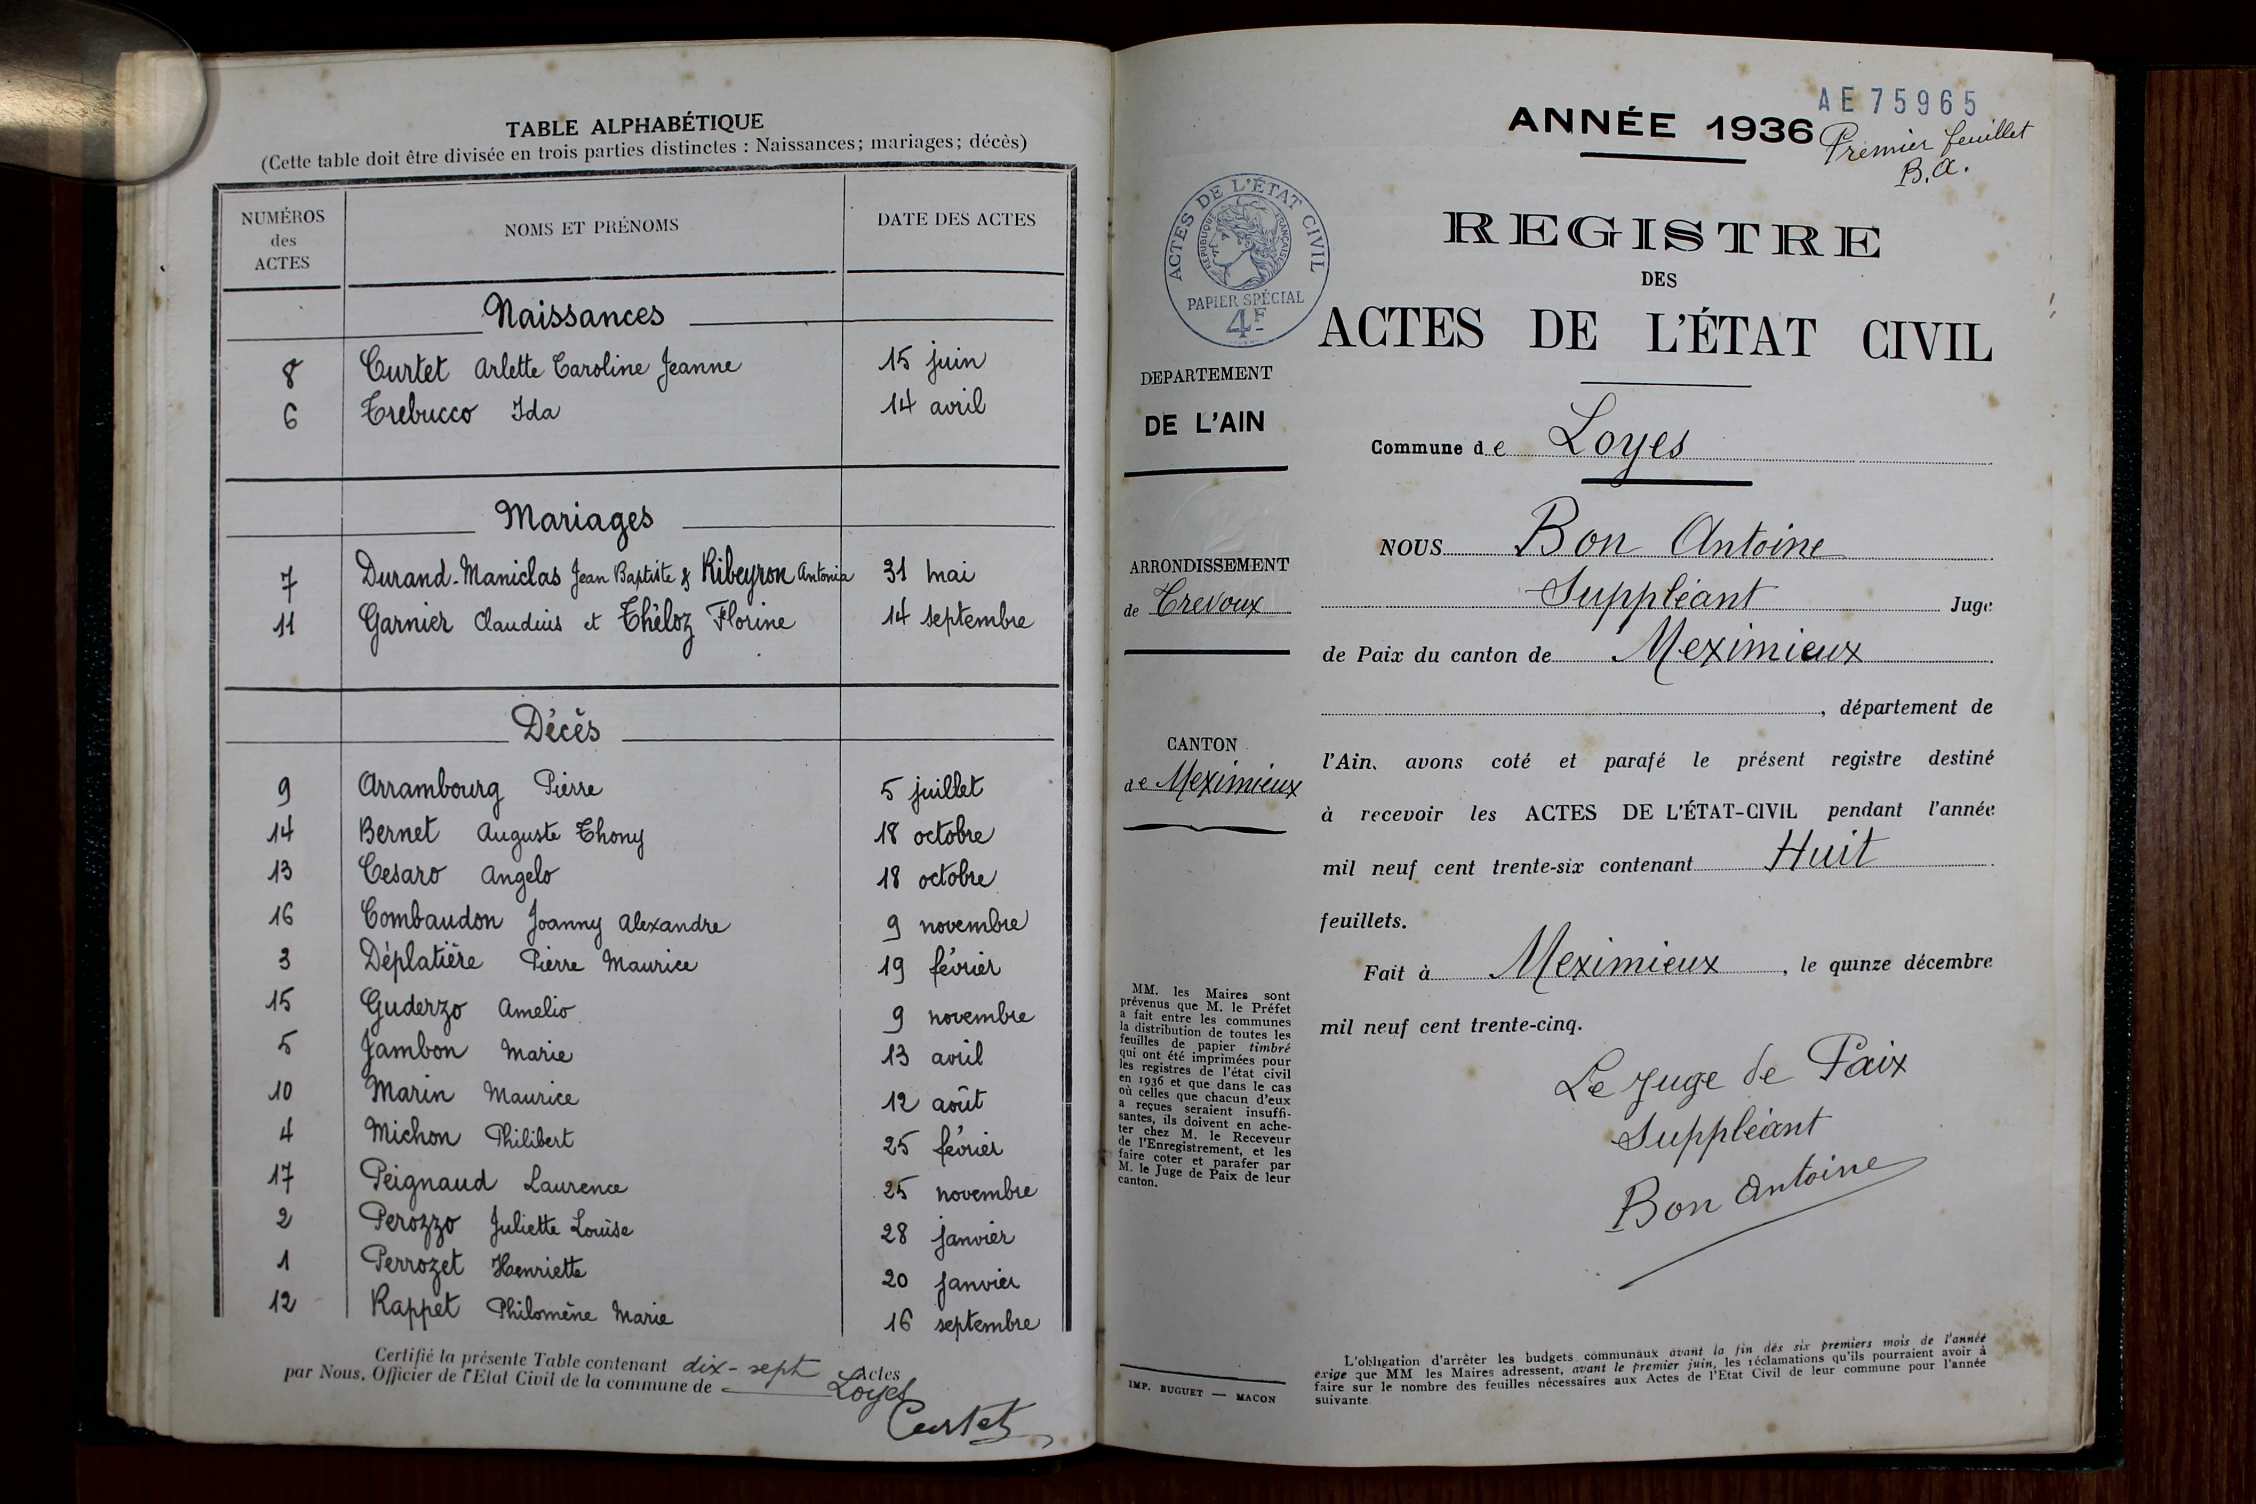 TABLE ALPHABÉTIQUE
(Cette table doit être divisée en trois parties distinctes : Naissances; mariages; décès)
NUMÉROS des ACTES
NOMS ET PRÉNOMS
DATE DES ACTES
Naissances
8 Curtet Arlette Caroline Jeanne 15 juin
6 Trebucco Ida 14 avril
Mariages
7 Durand-Maniclas Jean Baptiste & Ribeyron Antonia 31 mai
11 Garnier Claudius et Théloz Florine 14 septembre
Décès
9 Arrambourg Pierre 5 juillet
14 Bernet Auguste Thony 18 octobre
13 Cesaro Angelo 18 octobre
16 Combaudon Joanny Alexandre 9 novembre
3 Déplatière Pierre Maurice 19 février
15 Guderzo Amelio 9 novembre
5 Jambon Marie 13 avril
10 Marin Maurice 12 août
4 Michon Philibert 25 février
17 Peignaud Laurence 25 novembre
2 Perozzo Juliette Louise 28 janvier
1 Perrozet Henriette 20 janvier
12 Rappet Philomène Marie 16 septembre
Certifié la présente Table contenant dix-sept Actes
par Nous, Officier de l'Etat Civil de la commune de Loyes
Curtet
AE 75965
ANNÉE 1936
Premier feuillet
B.A.
ACTES DE L'ÉTAT CIVIL
RÉPUBLIQUE FRANÇAISE
PAPIER SPÉCIAL
4F
REGISTRE
DES
ACTES DE L'ÉTAT CIVIL
DEPARTEMENT
DE L'AIN
Commune de Loyes
NOUS Bon Antoine
ARRONDISSEMENT
de Trevoux
Suppléant Juge
de Paix du canton de Meximieux
, département de
CANTON
de Meximieux
l'Ain, avons coté et parafé le présent registre destiné
à recevoir les ACTES DE L'ÉTAT-CIVIL pendant l'année
mil neuf cent trente-six contenant Huit
feuillets.
Fait à Meximieux, le quinze décembre
mil neuf cent trente-cinq.
Le Juge de Paix
Suppléant
Bon Antoine
MM. les Maires sont
prévenus que M. le Préfet
a fait entre les communes
la distribution de toutes les
feuilles de papier timbré
qui ont été imprimées pour
les registres de l'état civil
en 1936 et que dans le cas
où celles que chacun d'eux
a reçues seraient insuffi-
santes, ils doivent en ache-
ter chez M. le Receveur
de l'Enregistrement, et les
faire coter et parafer par
M. le Juge de Paix de leur
canton.
IMP. BUGUET — MACON
L'obligation d'arrêter les budgets communaux avant la fin des six premiers mois de l'année
exige que MM les Maires adressent, avant le premier juin, les réclamations qu'ils pourraient avoir à
faire sur le nombre des feuilles nécessaires aux Actes de l'Etat Civil de leur commune pour l'année
suivante.